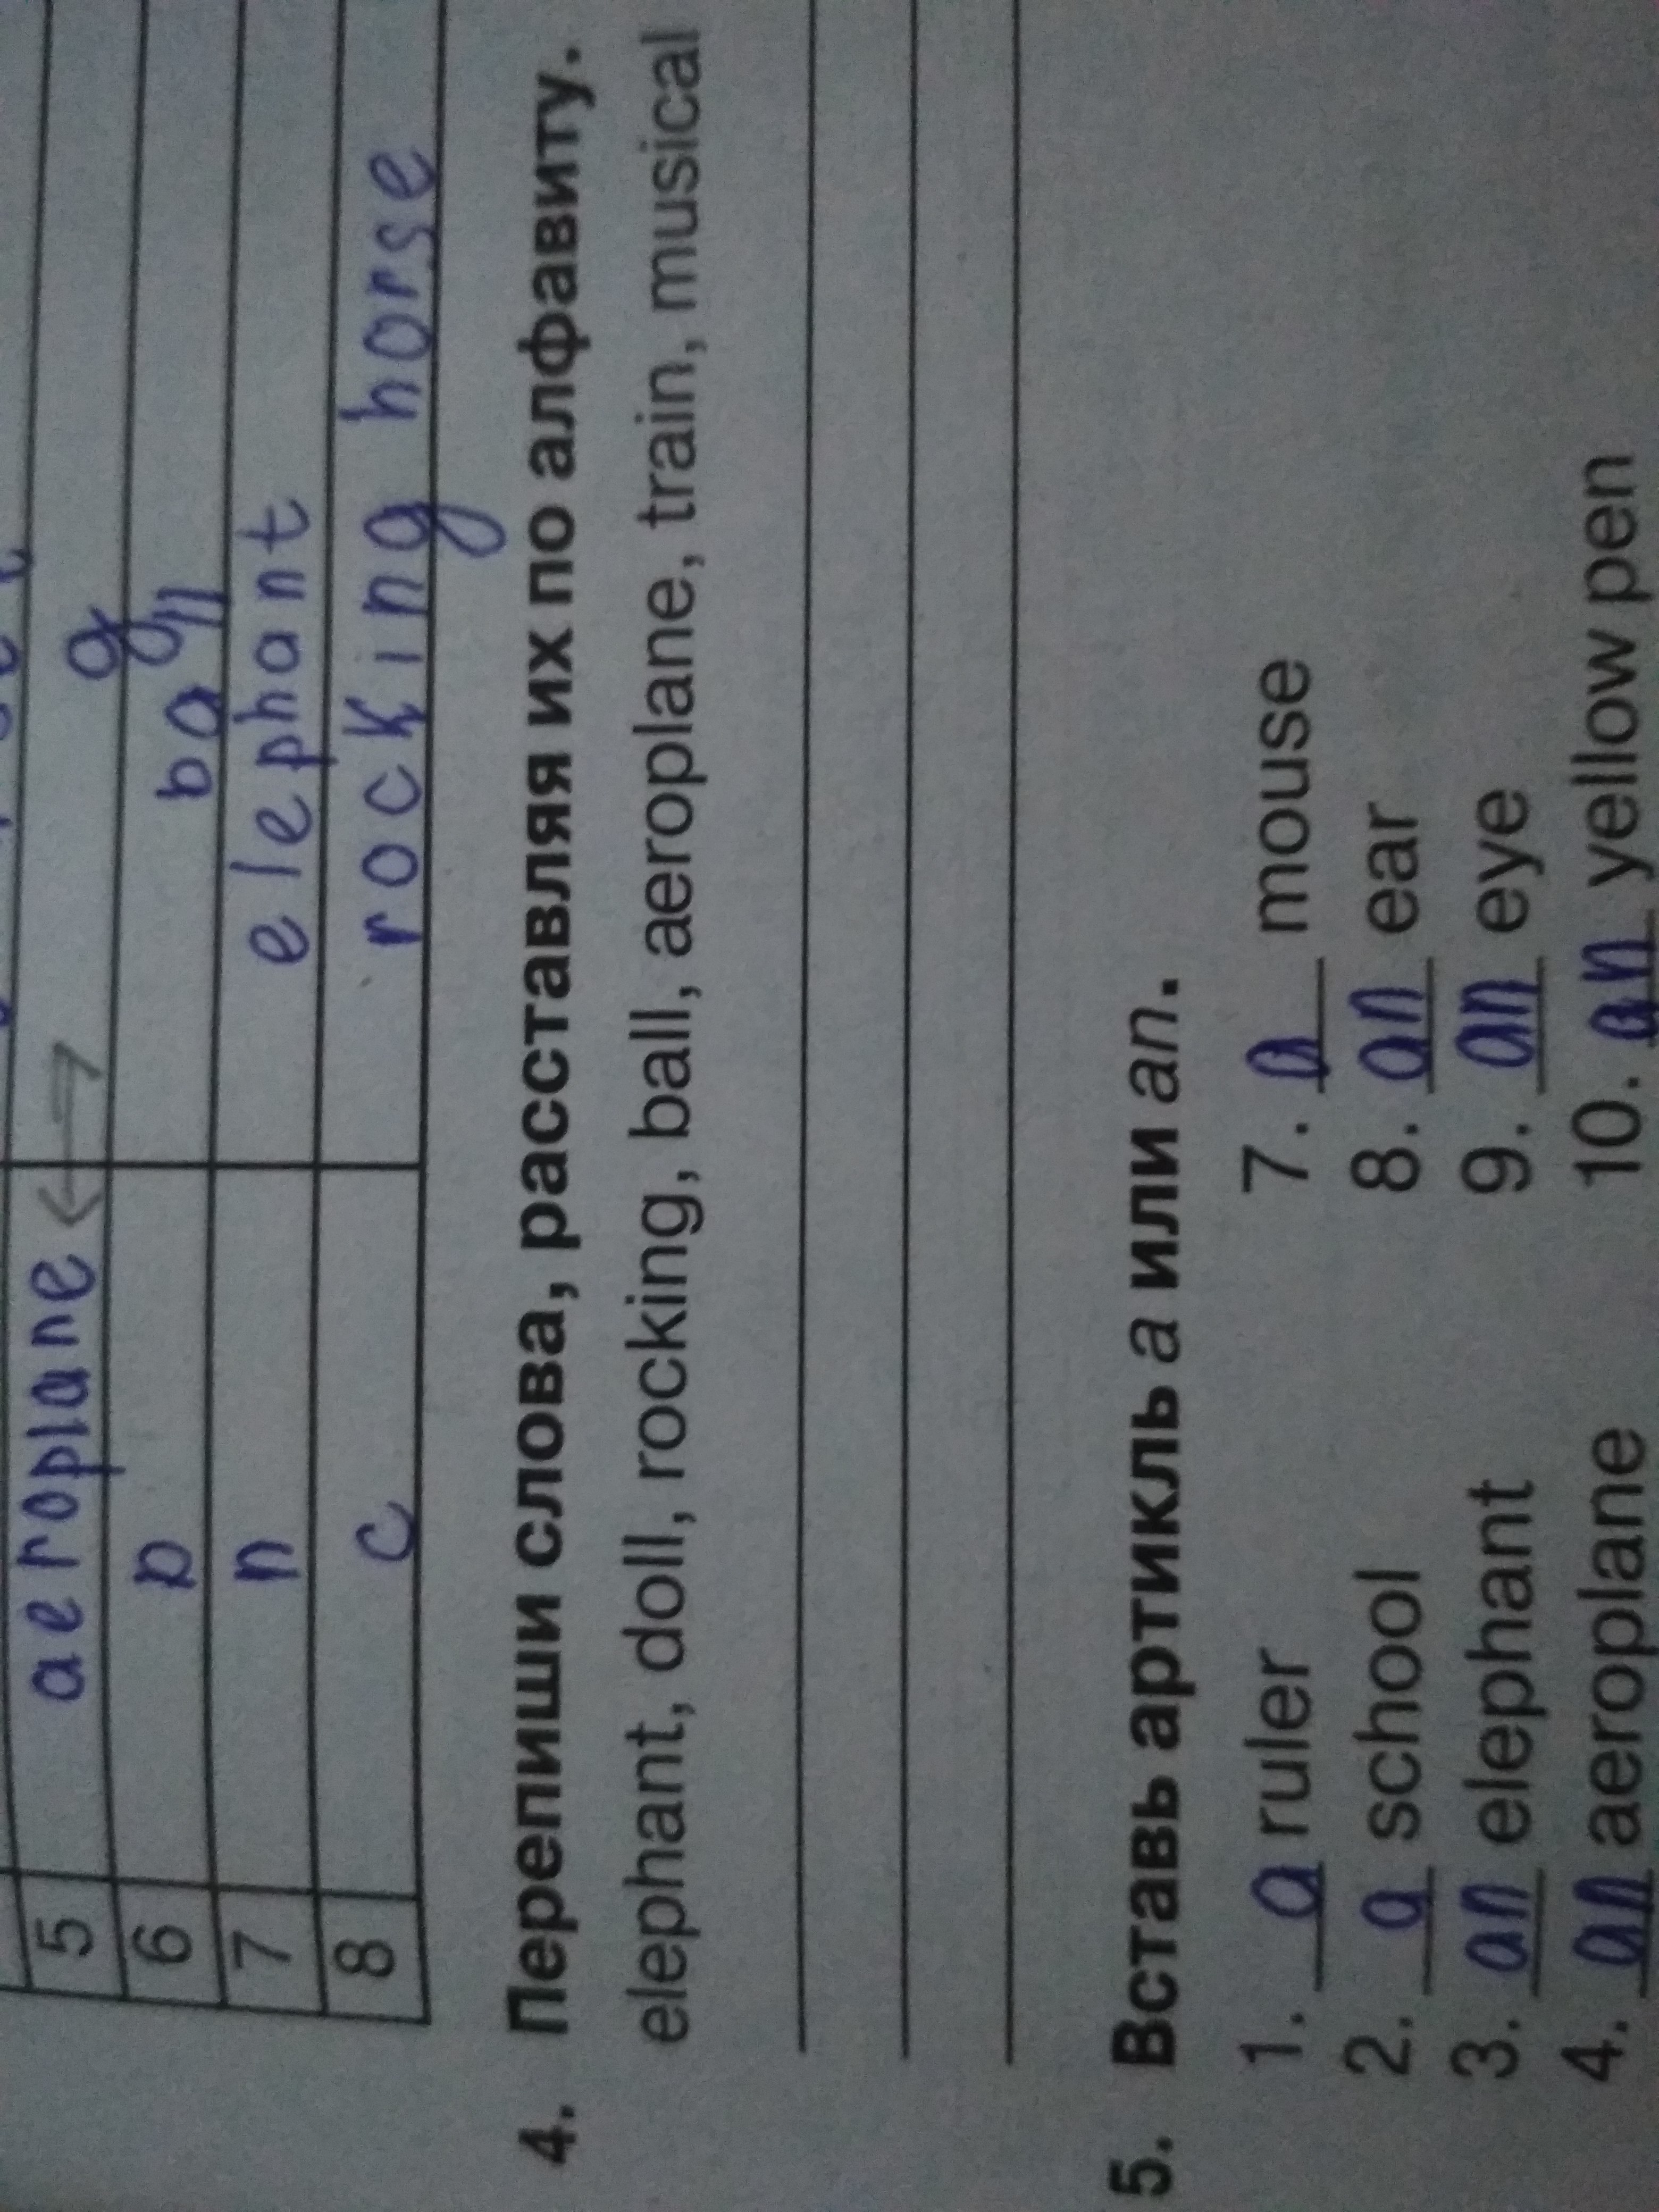 5 aeroplane g
6 b ball
7 n elephant
8 c rocking horse
4. Перепиши слова, расставляя их по алфавиту.
elephant, doll, rocking, ball, aeroplane, train, musical
5. Вставь артикль a или an.
1. a ruler 7. a mouse
2. a school 8. an ear
3. an elephant 9. an eye
4. an aeroplane 10. an yellow pen